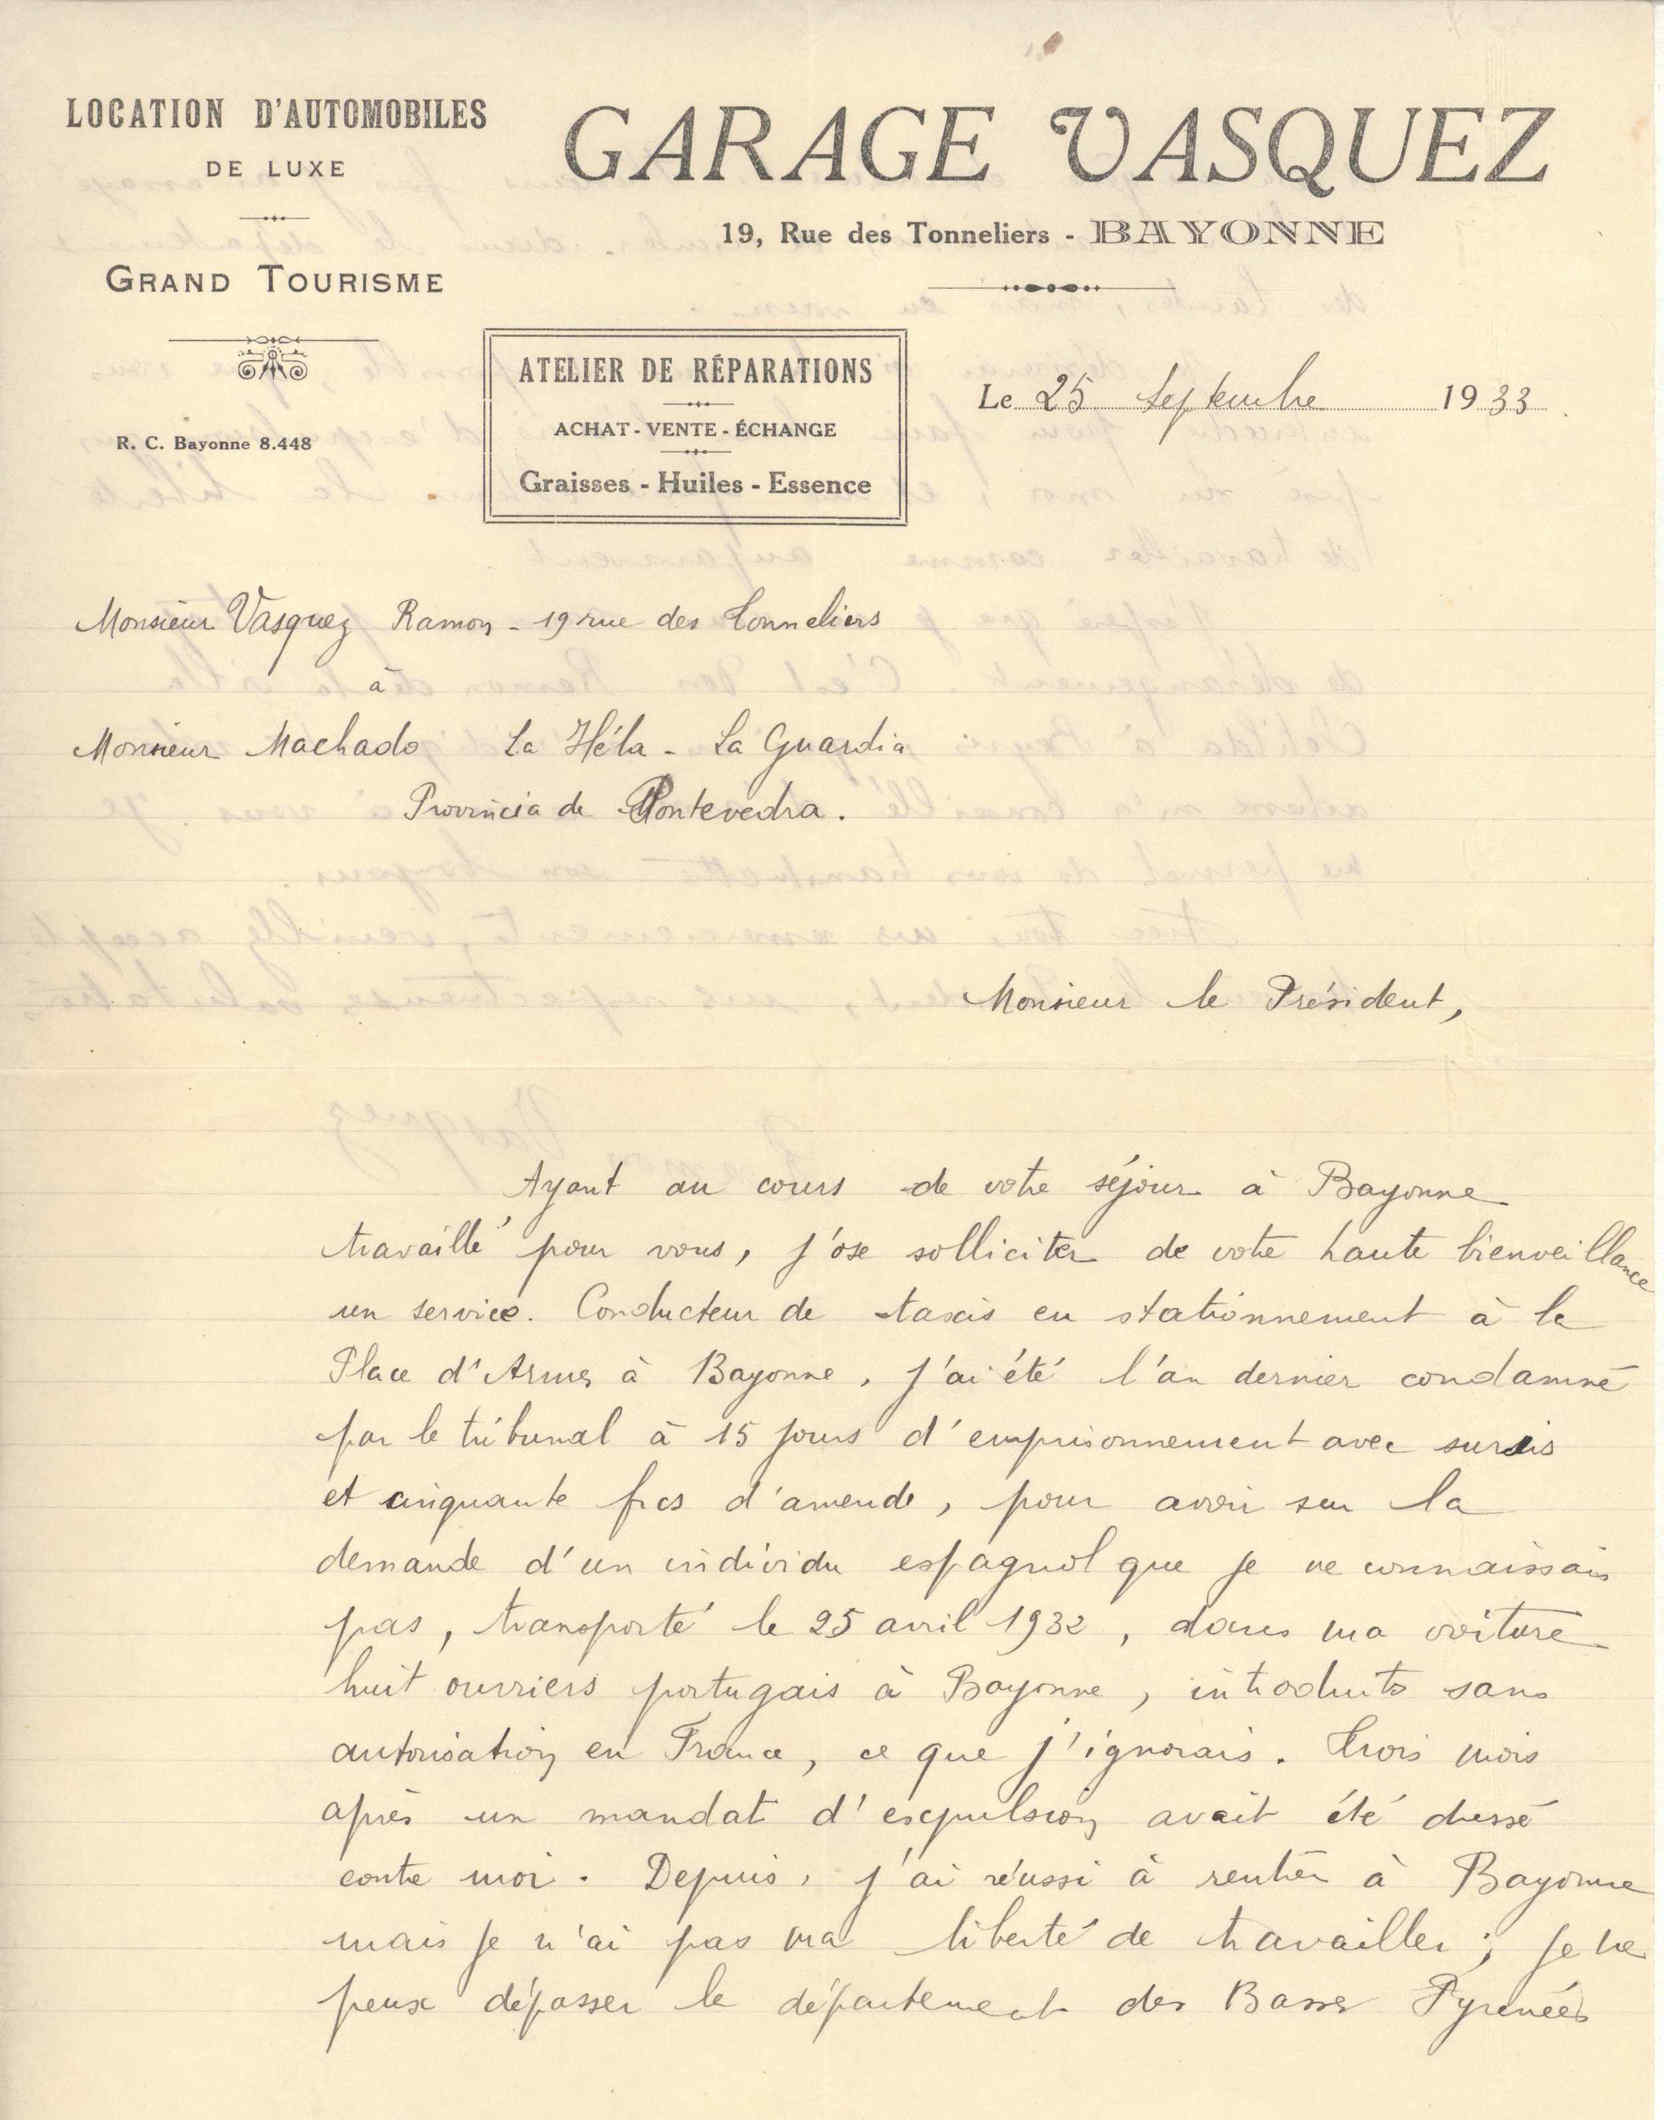 LOCATION D'AUTOMOBILES
DE LUXE
GRAND TOURISME
R. C. Bayonne 8.448
GARAGE VASQUEZ
19, Rue des Tonneliers - BAYONNE
ATELIER DE RÉPARATIONS
ACHAT - VENTE - ÉCHANGE
Graisses - Huiles - Essence
Le 25 Septembre 1933
Monsieur Vasquez Ramon - 19 rue des Tonneliers
à
Monsieur Machado La Héla - La Guardia
Provincia de Pontevedra.
Monsieur le Président,
Ayant au cours de votre séjour à Bayonne
travaillé pour vous, j'ose solliciter de votre haute bienveillance
un service. Conducteur de taxis en stationnement à la
Place d'Armes à Bayonne, j'ai été l'an dernier condamné
par le tribunal à 15 jours d'emprisonnement avec sursis
et cinquante frcs d'amende, pour avoir sur la
demande d'un individu espagnol que je ne connaissais
pas, transporté le 25 avril 1932, dans ma voiture
huit ouvriers portugais à Bayonne, introduits sans
autorisation en France, ce que j'ignorais. Trois mois
après un mandat d'expulsion avait été dressé
contre moi. Depuis, j'ai réussi à rentrer à Bayonne
mais je n'ai pas ma liberté de travailler ; je ne
peux dépasser le département des Basses Pyrénées